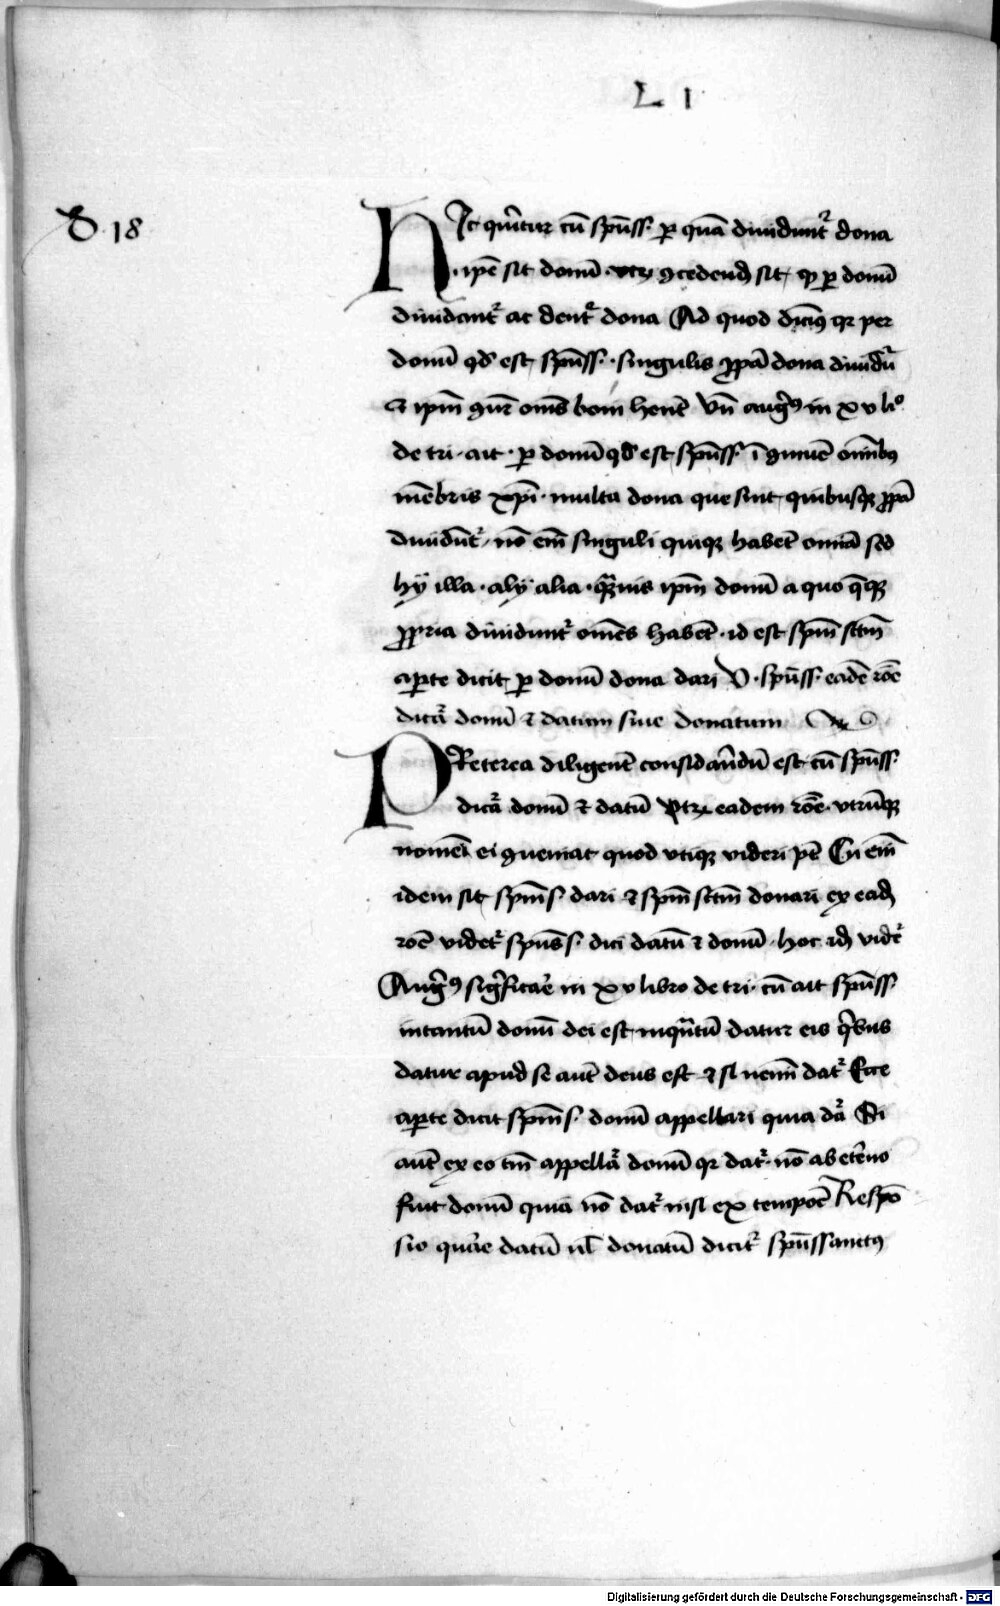 L I
D 18
HIc qu̅itur cu̅ spu̅ss. p̱ qua̅ diuidunt᷑ dona
ip̄e sit donu̅ utꝝ ꝯcedend̄ sit ꝙ p̱ donu̅
diuidant᷑ ac dent᷑ dona Ad quod dicim᷒ qr per
donu̅ qd̄ est spu̅ss. singulis ꝓpa̅ dona diuidu̅
⁊ ip̄m ꝯr̄ om̄s boni hen̄t Vn̄ aug᷒ in xv liᵒ
de tri. ait. p̱ donu̅ qd̄ est spu̅ss. ī ꝯmue̅ om̄ibꝰ
me̅bris xp̄i. multa dona que sunt quibusqꝫ ꝓpa̅
diuidu̅t᷑ no̅ em̄ singuli quiqꝫ habe̅t om̄ia sed
hÿ illa. alÿ alia. q̄uis ip̄m donu̅ a quo q̄qꝫ
ꝓpria diuidunt᷑ om̄es habe̅t. id est spm̄ sc̄tm̄
ap̱te dicit p̱ donu̅ dona dari V. spu̅ss. eade̅ ro̅e
dicit᷑ donu̅ ⁊ datum siue donatum
PReterea diligent̄ consid̄andu̅ est cu̅ spu̅ss.
dicit᷑ donu̅ ⁊ datu̅ vtꝝ eadem ro̅e. vtru̅qꝫ
nomen ei ꝯueniat quod vtiqꝫ videri pt̄ Cu̅ em̄
idem sit spm̄ s. dari ⁊ spm̄ sc̄tm̄ donari ex ead̄
ro̅e videt᷑ spu̅s s. dici datu̅ ⁊ donu̅. hoc id̄ videt᷑
Aug᷒ sig̅ficare in xv libro de tri. cu̅ ait spu̅ss.
intantu̅ donu̅ dei est inqu̅tu̅ datur eis q̅bus
datur apud se aut̄ deus est ⁊ si nemi̅ dat᷑ Ecce
ap̱te dicit spm̄ s. donu̅ appellari quia dat᷑ Si
aut̄ ex eo tm̄ appellat᷑ donu̅ qr dat᷑. no̅ ab et̄no
fuit donu̅ quia no̅ dat᷑ nisi ex tempore Respo̅
sio quare datu̅ ul̄ donatu̅ dicit᷑ spu̅ssanctus
Digitalisierung gefördert durch die Deutsche Forschungsgemeinschaft - DFG